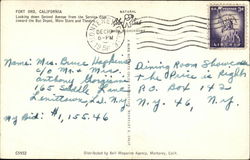 FORT ORD, CALIFORNIA
Looking down Second Avenue from the Service Club
toward the Bus Depot, Main Store and Theater.
NATURAL
DEC
6 - PM
Name: Mrs. Bruce Hopkins
c/o Mr. + Mrs.
Anthony Gorgiani
165 Saddle Lane
Levittown, N.Y.
My Bid: $1,155.46
Dining Room Showcase
The Price is Right
P.O. Box 142
N.Y. 46, N.Y.
LIBERTY
C5932
Distributed by Bell Magazine Agency, Monterey, Calif.